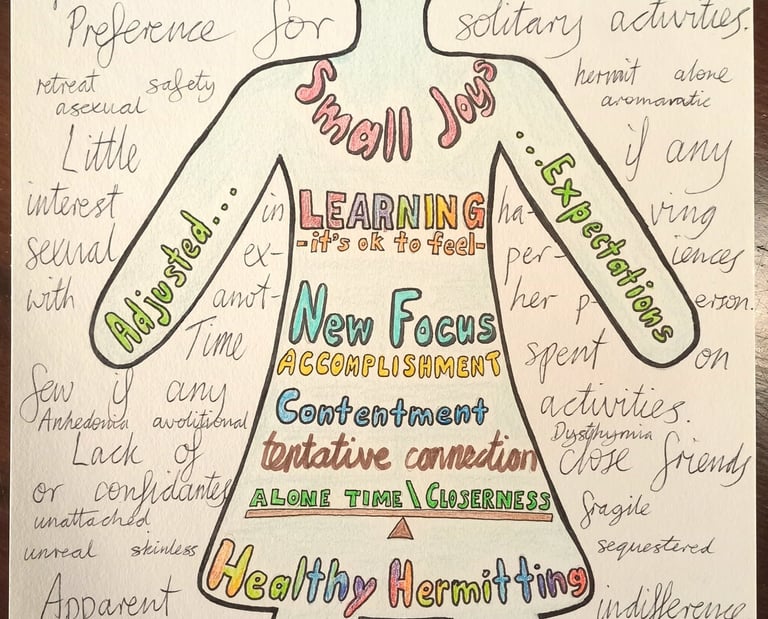 Preference for solitary activities.
Small Joys
retreat safety hermit alone
asexual aromantic
Little if any
Adjusted... ...Expectations
interest in LEARNING ha- ving
-it's ok to feel-
sexual ex- per- iences
with anot- her p- erson.
New Focus
Time spent on
ACCOMPLISHMENT
few if any activities.
Contentment
Anhedonia avolitional Dysthymia
Lack of close friends
tentative connection
or confidantes
ALONE TIME\CLOSERNESS
unattached fragile
unreal skinless sequestered
Healthy Hermitting
Apparent indifference